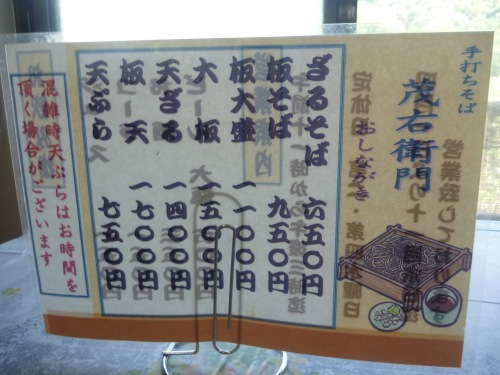 手打ちそば
茂右衛門
おしながき
ざるそば 六五〇円
板そば 九五〇円
板大盛 一一〇〇円
大板 一五〇〇円
天ざる 一四〇〇円
板天 一七〇〇円
天ぷら 七五〇円
混雑時天ぷらはお時間を
頂く場合がございます